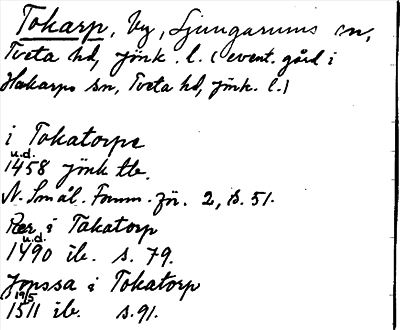 Tokarp, by, Ljungarums sn,
Tveta hd, Jönk. l. (event. gård i
Hakarps sn, Tveta hd, Jönk. l.)
i Tokatorpe
u.d.
1458 Jönk tb.
N. Smål. Fornm. för. 2, s. 51.
Per i Takatorp
u.d.
1490 ib. s. 79.
Jonssa i Tokatorp
19/5
1511 ib. s. 91.